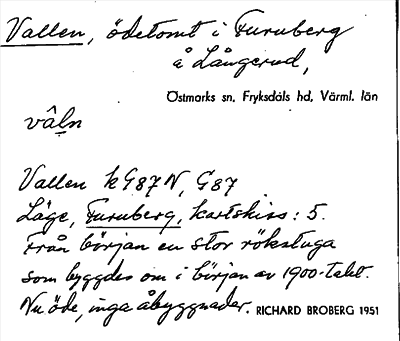 Vallen, ödetomt i Furuberg
å Långerud,
Östmarks sn, Fryksdals hd, Värml. län
vâḷn
Vallen k G87 N, G87
Läge, Furuberg, kartskiss: 5.
Från början en stor rökstuga
som byggdes om i början av 1900-talet.
Nu öde, inga åbyggnader. RICHARD BROBERG 1951